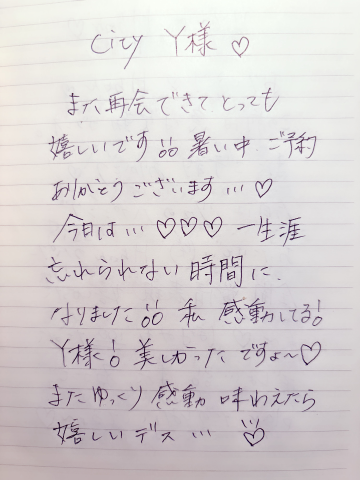 City Y様 ♡
また再会できてとっても
嬉しいです!! 暑い中ご予約
ありがとうございます…♡
今日は…♡♡♡ 一生涯
忘れられない時間に、
なりました!! 私 感動してる!
Y様! 美しかったですよ〜♡
またゆっくり感動味わえたら
嬉しいデス…♡